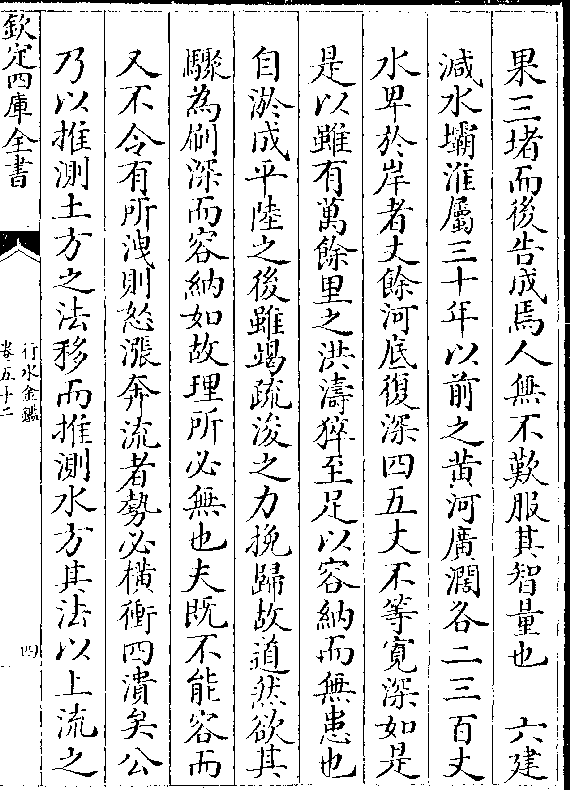 果三堵而後告成焉人無不歎服其智量也　六建
減水壩淮屬三十年以前之黄河廣濶各二三百丈
水卑於岸者丈餘河底復深四五丈不等寬深如是
是以雖有萬餘里之洪濤猝至足以容納而無患也
自淤成平陸之後雖竭疏浚之力挽歸故道然欲其
驟為刷深而容納如故理所必無也夫既不能容而
又不令有所洩則怒漲奔流者勢必橫衝四潰矣公
乃以推測土方之法移而推測水方其法以上流之
欽定四庫全書
行水金鑑
卷五十二
四